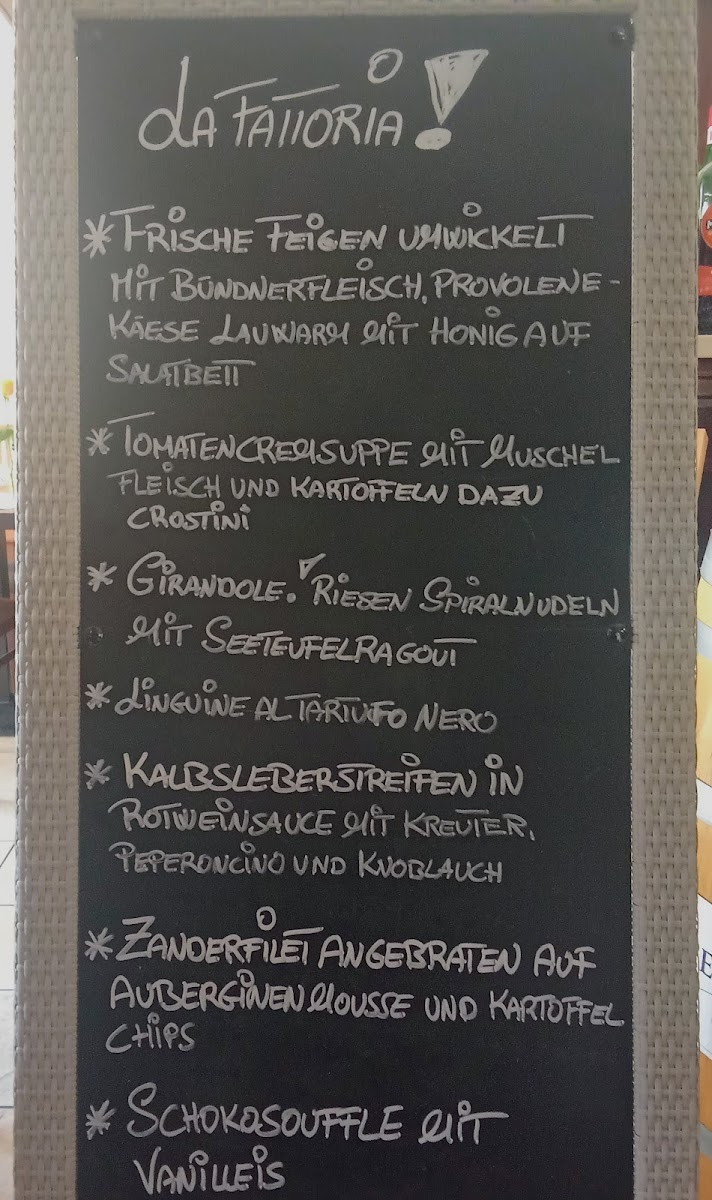 LA FATTORIA!
* FRISCHE FEIGEN UMWICKELT
MIT BÜNDNERFLEISCH, PROVOLENE-
KÄESE LAUWARM MIT HONIG AUF
SALATBETT
* TOMATENCREMSUPPE MIT MUSCHEL
FLEISCH UND KARTOFFELN DAZU
CROSTINI
* GIRANDOLE. RIESEN SPIRALNUDELN
MIT SEETEUFELRAGOUT
* LINGUINE AL TARTUFO NERO
* KALBSLEBERSTREIFEN IN
ROTWEINSAUCE MIT KREUTER,
PEPERONCINO UND KNOBLAUCH
* ZANDERFILET ANGEBRATEN AUF
AUBERGINENMOUSSE UND KARTOFFEL
CHIPS
* SCHOKOSOUFFLE MIT
VANILLEIS